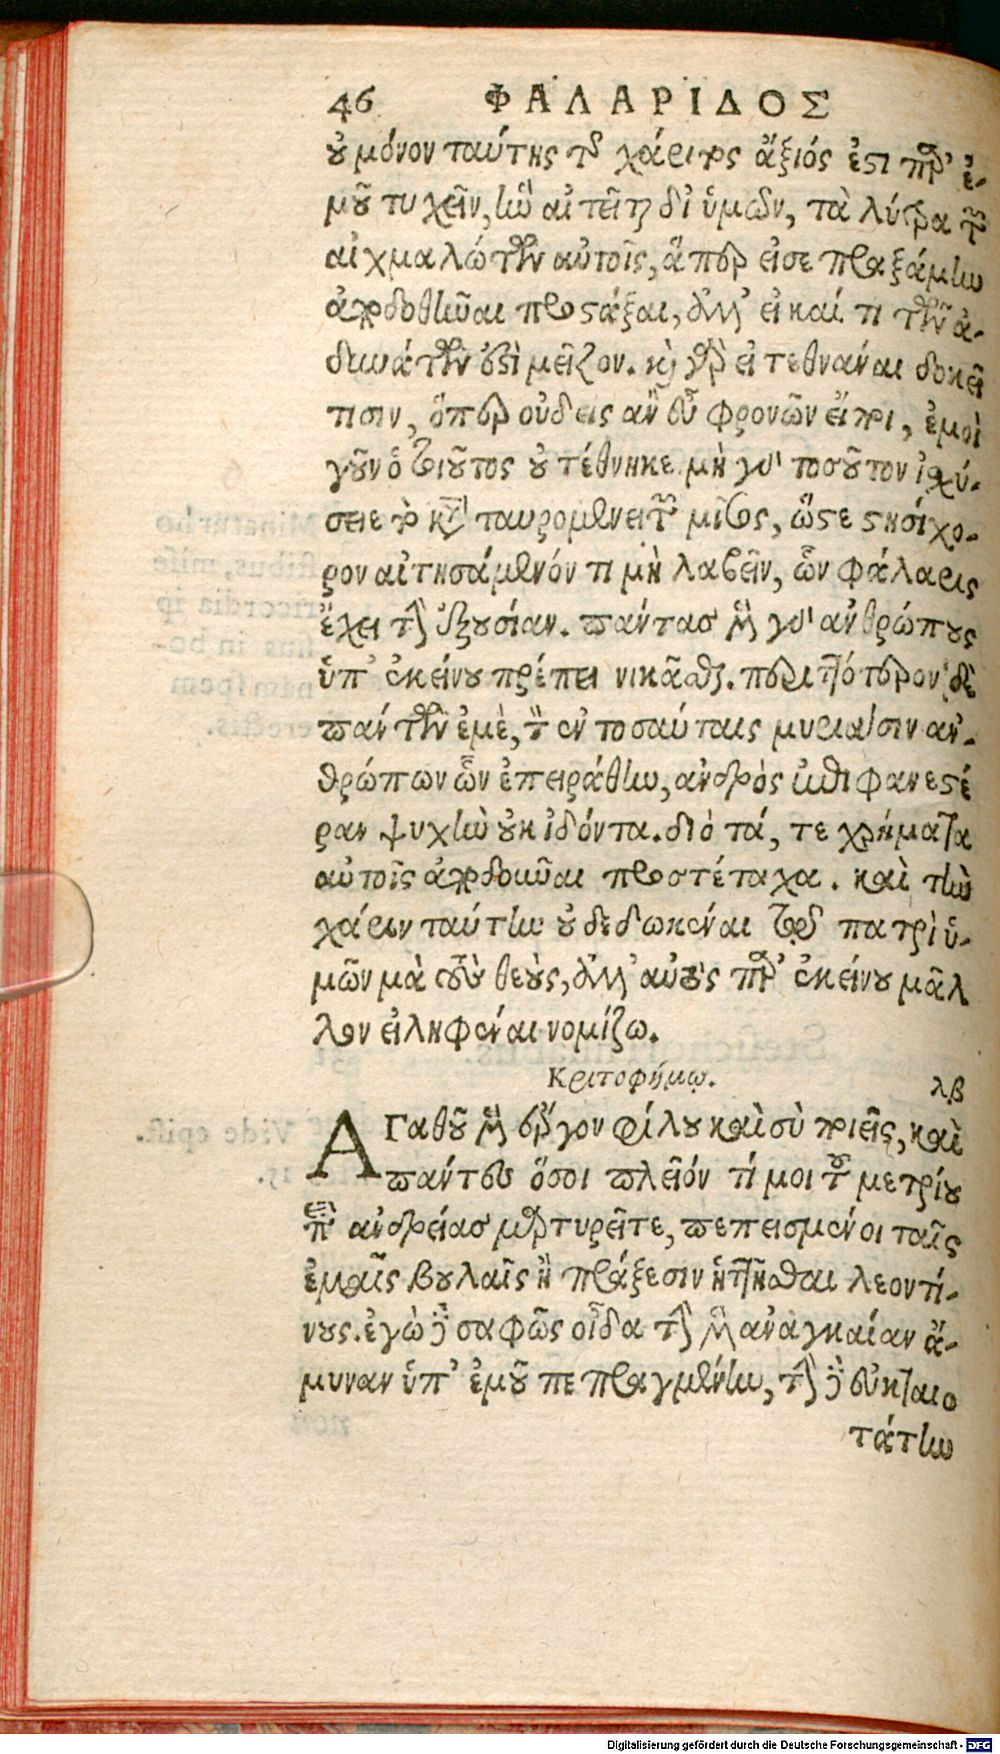 46 ΦΑΛΑΡΙΔΟΣ
οὐ μόνον ταύτης τῆς χάριτος ἄξιός ἐστι παρ' ἐ-
μοῦ τυχεῖν, ἣν αἰτεῖται δι' ὑμῶν, τὰ λύτρα τῶν
αἰχμαλώτων αὐτοῖς, ἅπερ εἰσεπραξάμην
ἀποδοθῆναι προστάξαι, ἀλλ' εἰ καί τι τῶν ἀ-
δυνάτων ἐστὶ μεῖζον. καὶ γὰρ εἰ τεθνάναι δοκεῖ
τισιν, ὅπερ οὐδεὶς ἂν εὖ φρονῶν εἴποι, ἐμοὶ
γοῦν ὁ τοιοῦτος οὐ τέθνηκε. μὴ γὰρ τοσοῦτον ἰσχύ-
σειε τὸ κατὰ ταυρομενειτῶν μῖσος, ὥστε στησίχο-
ρον αἰτησάμενόν τι μὴ λαβεῖν, ὧν φάλαρις
ἔχει τὴν ἐξουσίαν. πάντας μὲν γὰρ ἀνθρώπους
ὑπ' ἐκείνου πρέπει νικᾶσθαι. περιττότερον δὲ
πάντων ἐμὲ, τὸν ἐν τοσαύταις μυριάσιν ἀν-
θρώπων ὧν ἐπειράθην, ἀνδρὸς ἐπιφανεστέ
ραν ψυχὴν οὐκ ἰδόντα. διὸ τά, τε χρήματα
αὐτοῖς ἀποδοῦναι προστέταχα. καὶ τὴν
χάριν ταύτην οὐ δεδωκέναι τῷ πατρὶ ὑ-
μῶν μὰ τοὺς θεοὺς, ἀλλ' αὐτὸς παρ' ἐκείνου μᾶλ
λον εἰληφέναι νομίζω.
Κριτοφήμῳ. λβ
ΑΓαθοῦ μὲν ἔργον φίλου καὶ σὺ ποιεῖς, καὶ
πάντες ὅσοι πλεῖόν τί μοι τοῦ μετρίου
ἐπ' ἀνδρείας μαρτυρεῖτε, πεπεισμένοι ταῖς
ἐμαῖς βουλαῖς ἢ πράξεσιν ἡττῆσθαι λεοντί-
νους. ἐγὼ δὲ σαφῶς οἶδα τὴν μὲν ἀναγκαίαν ἄ-
μυναν ὑπ' ἐμοῦ πεπραγμένην, τὴν δὲ εὐκταιο
τάτην